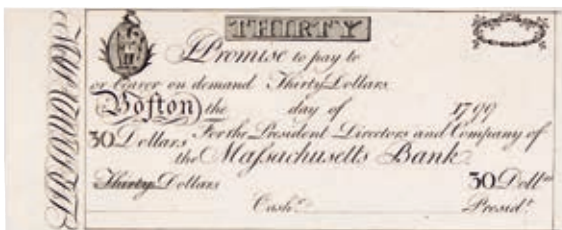 THIRTY
I Promise to pay to
or bearer on demand Thirty Dollars
Boſton the day of 1799
30 Dollars For the President Directors and Company of
the Maſsachusetts Bank
Thirty Dollars 30 Dollrs
Cashr. Presidt.